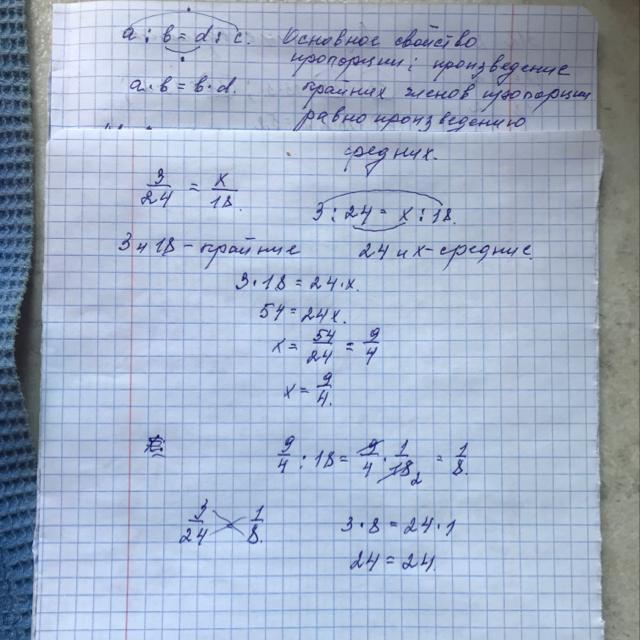 a : b = d : c. Основное свойство
пропорции: произведение
a·в = в·d. крайних членов пропорции
равно произведению
средних.
3/24 = x/18.
3 : 24 = x : 18.
3 и 18 – крайние 24 и x – средние.
3·18 = 24·x.
54 = 24x.
x = 54/24 = 9/4
x = 9/4.
9/4 : 18 = 9/4 · 1/18 2 = 1/8.
3/24 1/8. 3·8 = 24·1
24 = 24.